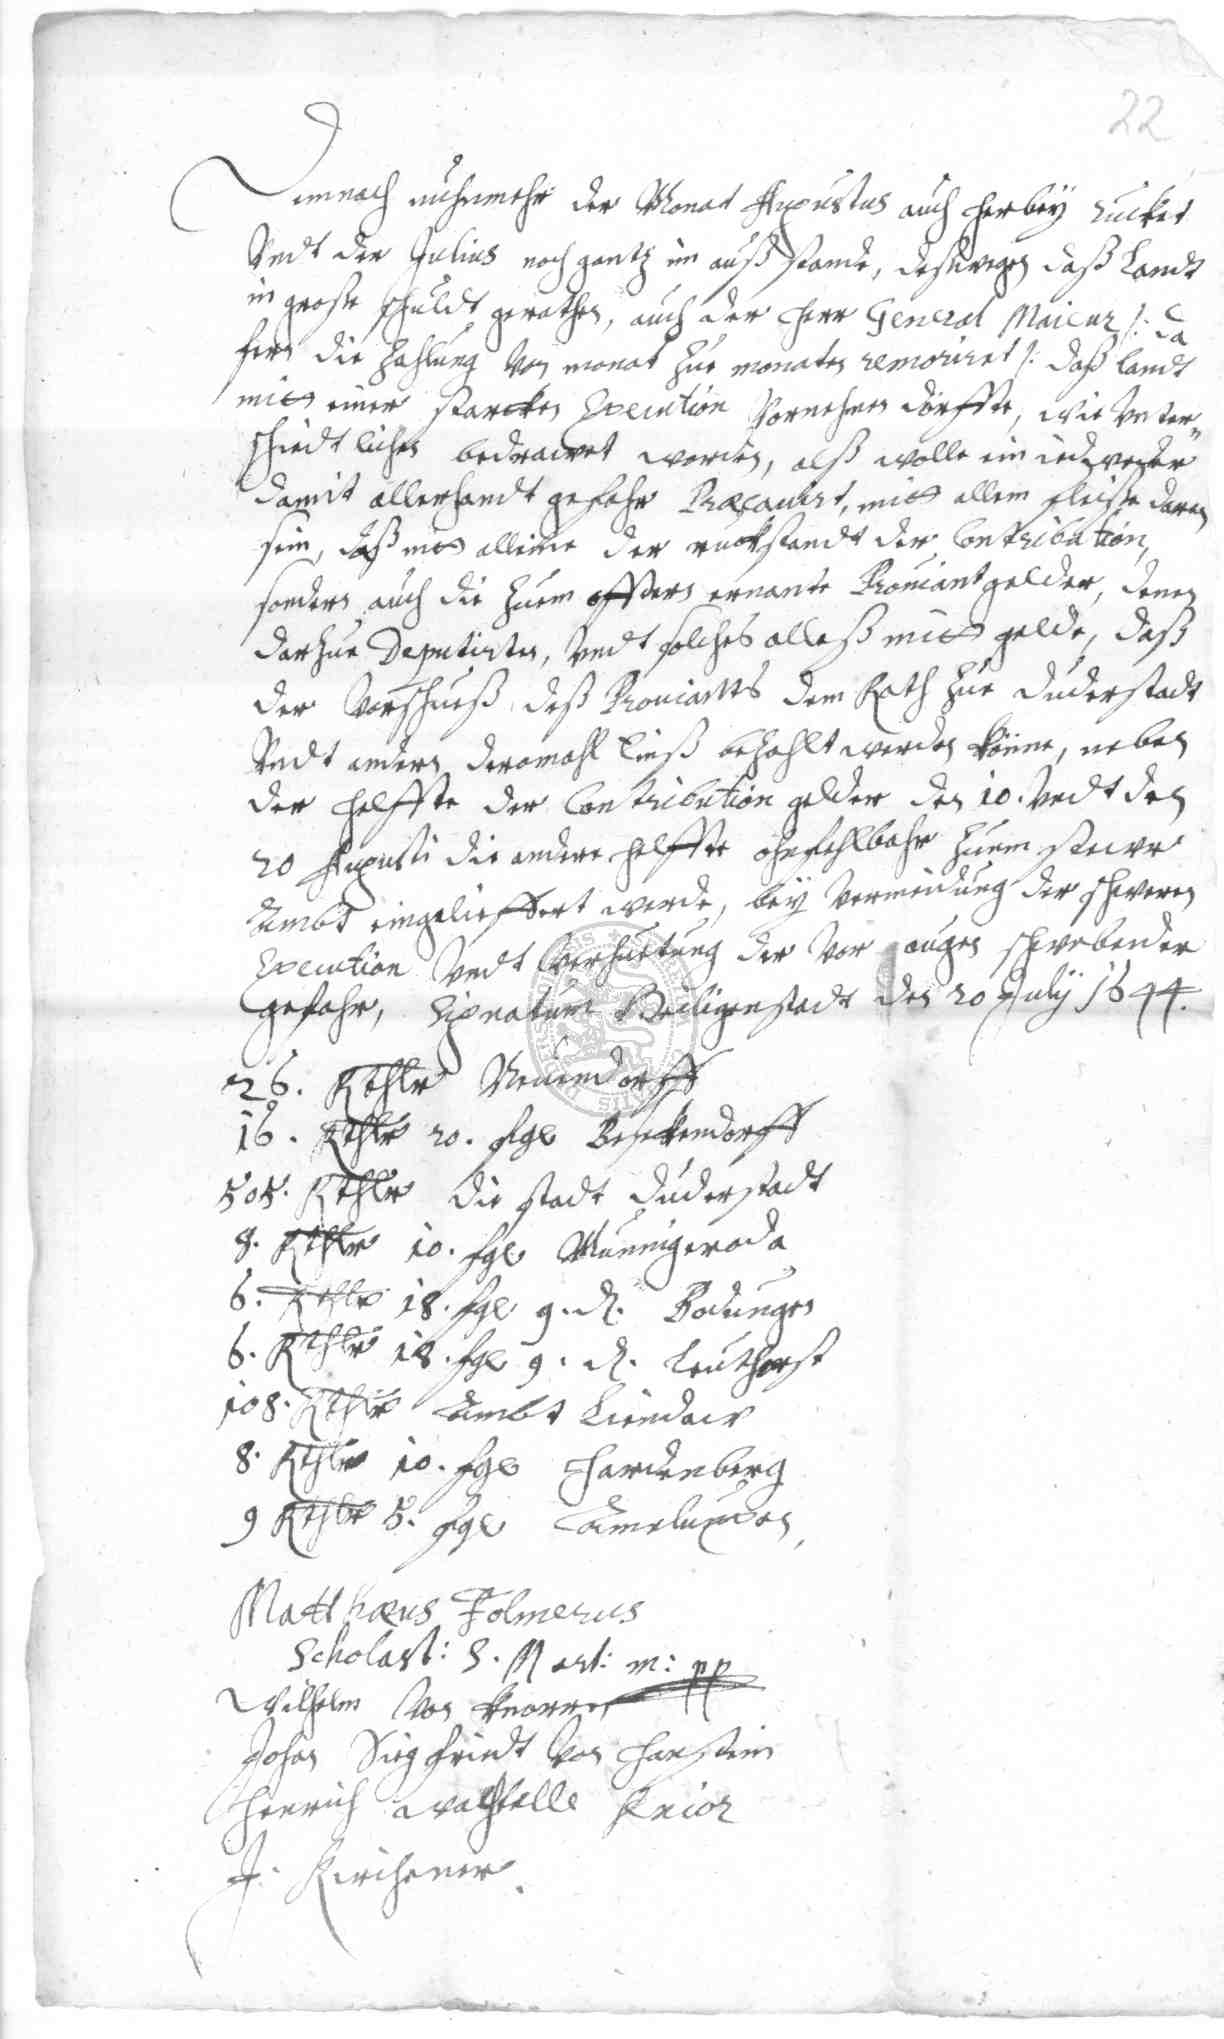 22
Demnach nuhnmehr der Monat Augustus auch herbey rucket
Undt der Julius noch gantz im außstande, deßwegen daß Landt
in große schuldt gerathen, auch der Herr General Maieur /: da
fern die Zahlung von monat zue monaten remoriret /: daß landt
mit einer starcken Execution Vornehmen dörffte, wie Unter-
schiedtlichen bedrawet worden, alß wolle ein iedtweder
damit allerhandt gefahr Præcavirt, mit allem fleiße daran
sein, daß nit alleine der ruckstandt der Contribution,
sondern auch die zuem offtern ernante Proviantgelder, denen
darzue Deputirten, Undt solches alleß mit gelde, daß
der Vorschueß deß Proviants dem Rath zue Duderstadt
Undt andern dermahl einß bezahlt werden könne, neben
der helffte der Contribution gelder den 10. Undt den
20 Augusti die andere helffte ohnfehlbahr zuem stewr
Ambt eingelieffert werde, bey Vermeidung der schweren
Execution Undt Verhuetung der Vor augen schwebender
gefahr, Signatum Heiligenstadt den 20 July 1644.
26. Rthlr Neuendorff
16. Rthlr 20. sgl Besekendorff
505. Rthlr die stadt Duderstadt
8. Rthlr 10. sgl Munnigeroda
6. Rthlr 18. sgl 9. d. Bodungen
6. Rthlr 18. sgl 9. d. Leuthorst
108. Rthlr Ambt Lindaw
8. Rthlr 10. sgl Hardenberg
9 Rthlr 5. sgl Amelunxen,
Matthæus Folmerus
Scholast: S. Mart: m: pp
Wilhelm Von Knorren
Johan Siegfriedt Von Hanstein
Henrich
J. Kirchener.